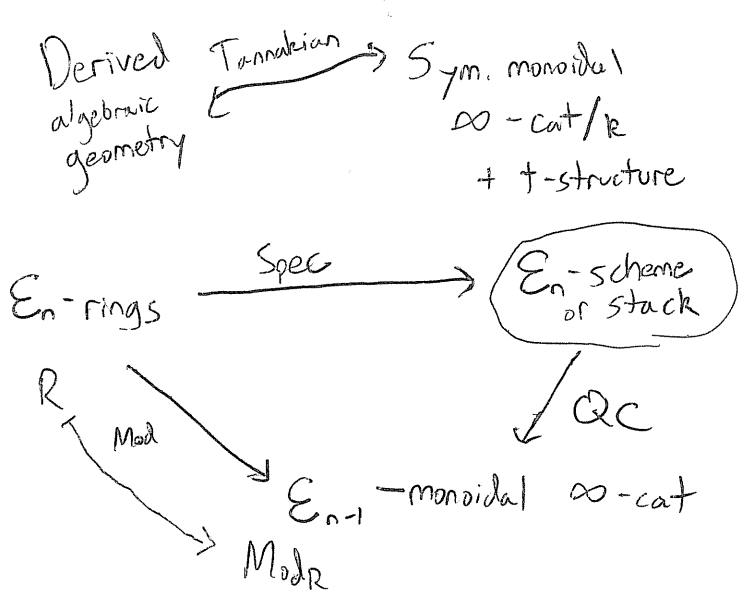 Derived
algebraic
geometry
Tannakian
Sym. monoidal
∞-cat/k
+ t-structure
Spec
ℰn-rings
ℰn-scheme
or stack
R
Mod
QC
ℰn-1-monoidal ∞-cat
ModR